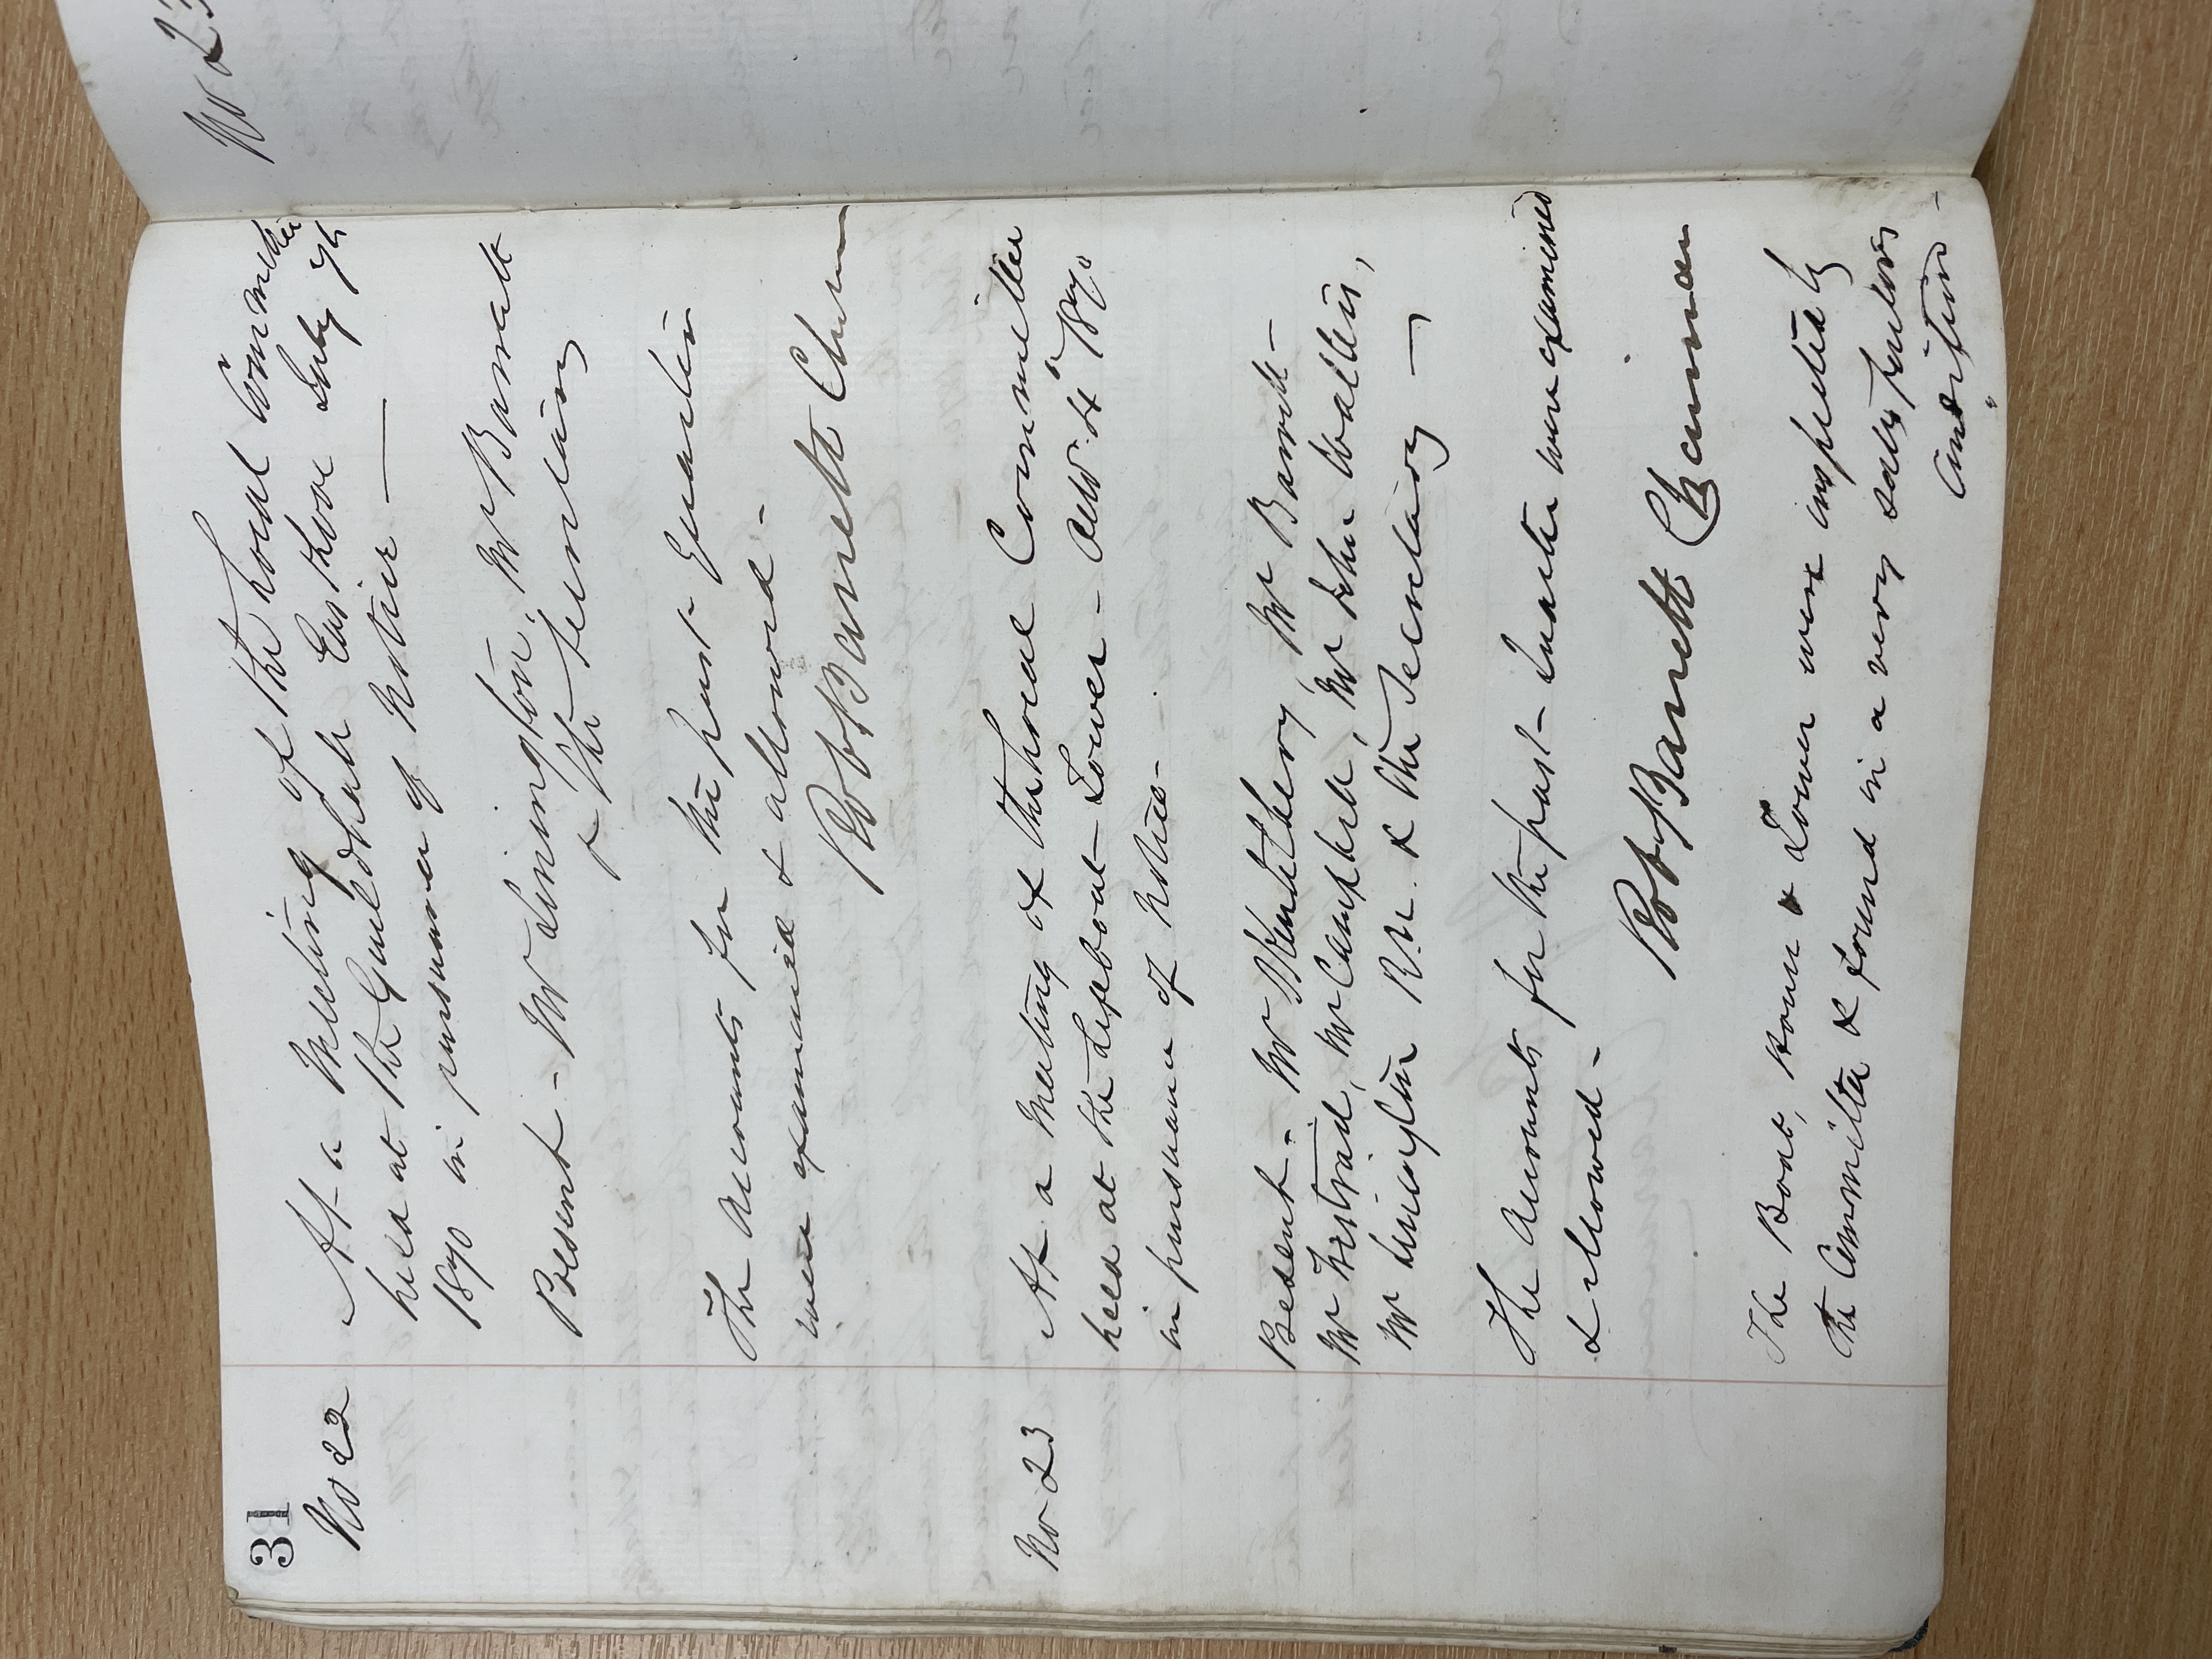 31
No 22
At a Meeting of the Local Committee
held at the Guildhall East Looe July 7th
1870 in pursuance of Notice —
Present - Mr Limington, Mr Barratt
& The Secretary
The Accounts for the past Quarter
were examined & allowed -
Robt Barrett Chrmn
No 23
At a Meeting of the Local Committee
held at the Lifeboat - Tower - Octr 4th 1870
in pursuance of Notice -
Present - Mr Barrett -
Mr Campbell, Mr John Wallis,
Mr R.N. & the Secretary —
The Accounts for the past Quarter were examined
& allowed -
Robt Barrett Chairman
The Boat, House & Tower were inspected by
the Committee & found in a very satisfactory
Condition -
No 23